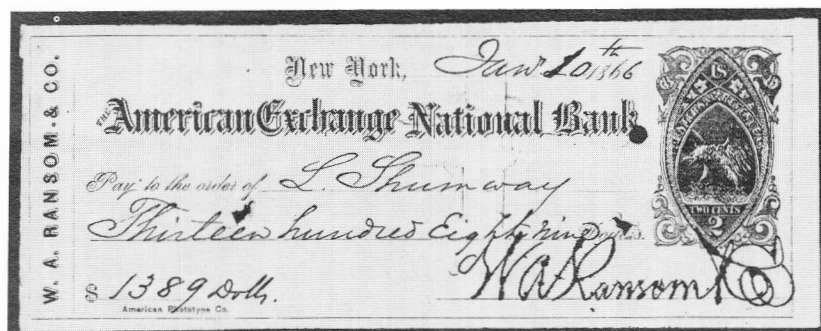 W. A. RANSOM & CO.
New York, Jany 10th 1866
THE American Exchange National Bank
Pay to the order of L. Shumway
Thirteen hundred Eighty nine Dollars.
$ 1389 Dolls.
W A Ransom & Co
American Phototype Co.
U.S.
INTER. REVENUE
TWO CENTS
2